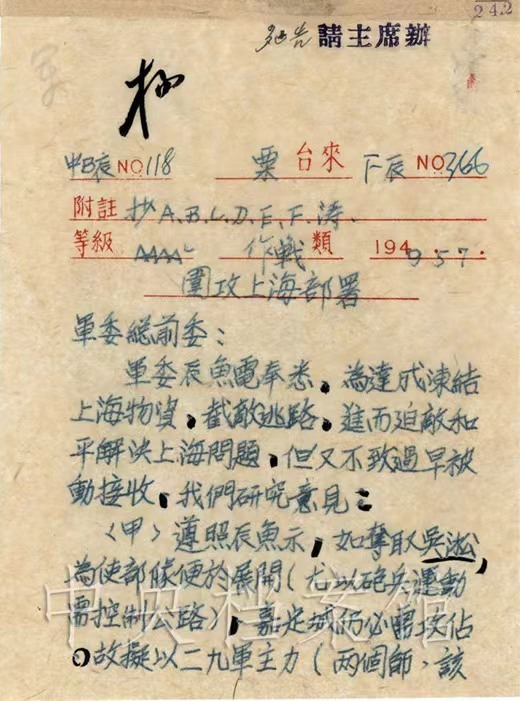 242
請主席辦
中B辰NO.118 粟台來 下辰NO3166
附註 抄A.B.C.D.E.F.濤.
等級 AAAA 作戰類 1949 5 7.
圍攻上海部署
軍委總前委：
軍委辰魚電奉悉、為達成凍結
上海物資、截敵逃路、進而迫敵和
平解決上海問題、但又不致過早被
動接收、我們研究意見：
〈甲〉遵照辰魚示，如奪取吳淞，
為使部隊便於展開（尤以砲兵運動
需控制公路），嘉定城仍必需攻佔
。故擬以二九軍主力（两個師、該
中央档案馆